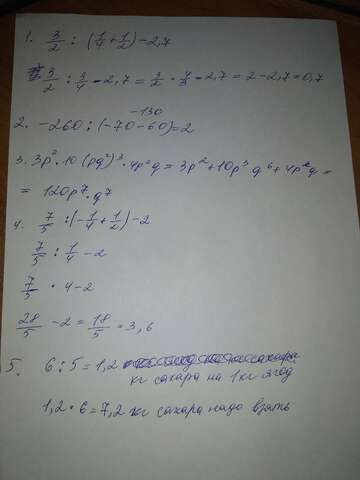 1. 3/2 : (1/4 + 1/2) - 2,7
3/2 : 3/4 - 2,7 = 3/2 · 4/3 - 2,7 = 2 - 2,7 = 0,7
-130
2. -260 : (-70-60) = 2
3. 3p² · 10 (pq²)³ · 4p²q = 3p² + 10p³ q⁶ + 4p²q =
= 120p⁷ · q⁷
4. 7/5 : (-1/4 + 1/2) - 2
7/5 : 1/4 - 2
7/5 · 4 - 2
28/5 - 2 = 18/5 = 3,6
5. 6 : 5 = 1,2
кг сахара на 1 кг ягод
1,2 · 6 = 7,2 кг сахара надо взять